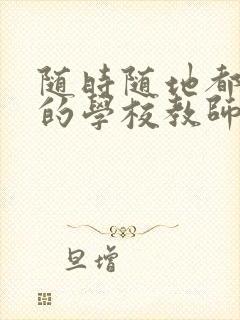 随時随地都
的學校教師
旦增